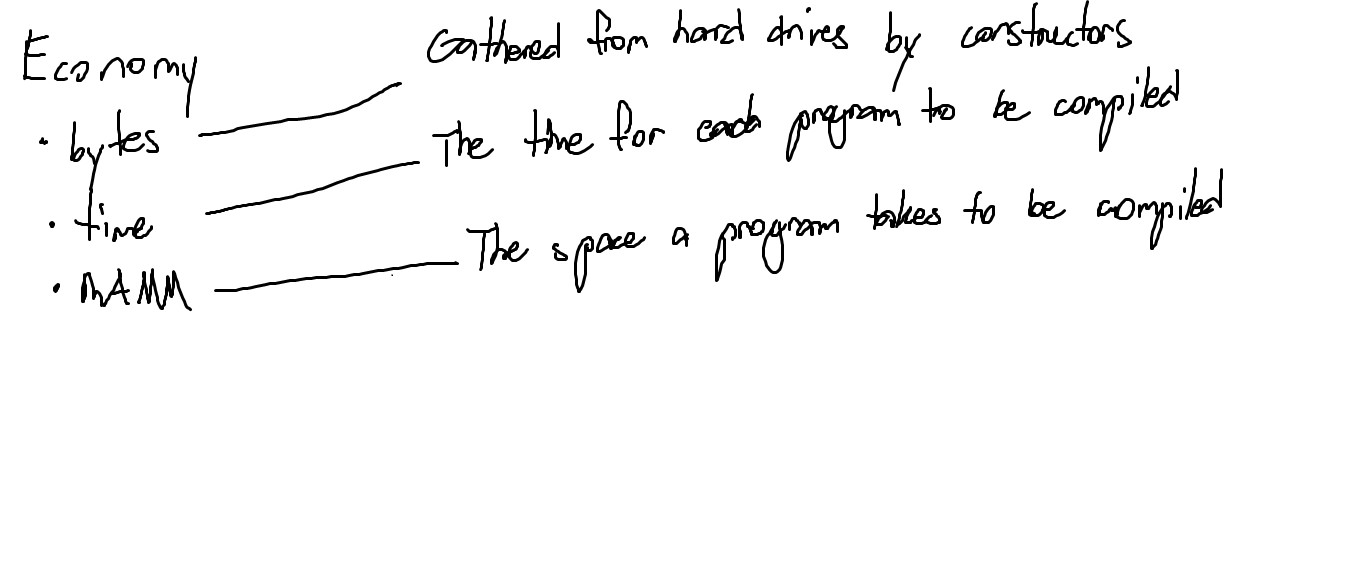 Economy
Gathered from hard drives by constructors
· bytes
The time for each program to be compiled
· time
The space a program takes to be compiled